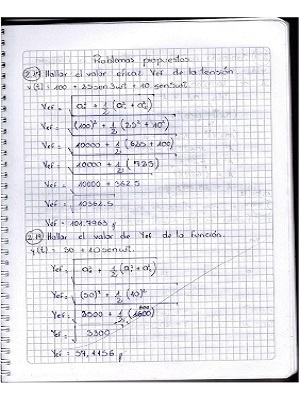 Problemas propuestos
2.15 Hallar el valor eficaz Yef de la tensión.
v(t) = 100 + 25 sen3wt + 10 sen5wt
Yef = √a₀² + 1/2 (a₁² + a₂²)
Yef = √(100)² + 1/2 (25² + 10²)
Yef = √10000 + 1/2 (625 + 100)
Yef = √10000 + 1/2 (725)
Yef = √10000 + 362.5
Yef = √10362.5
Yef = 101.7963
Hallar el valor de Yef de la función.
y(t) = 50 + 40 senwt
Yef = √a₀² + 1/2
Yef = √(50)² + 1/2
Yef = √ + 1/2 (1600)
Yef = √3300
Yef = 57,4456